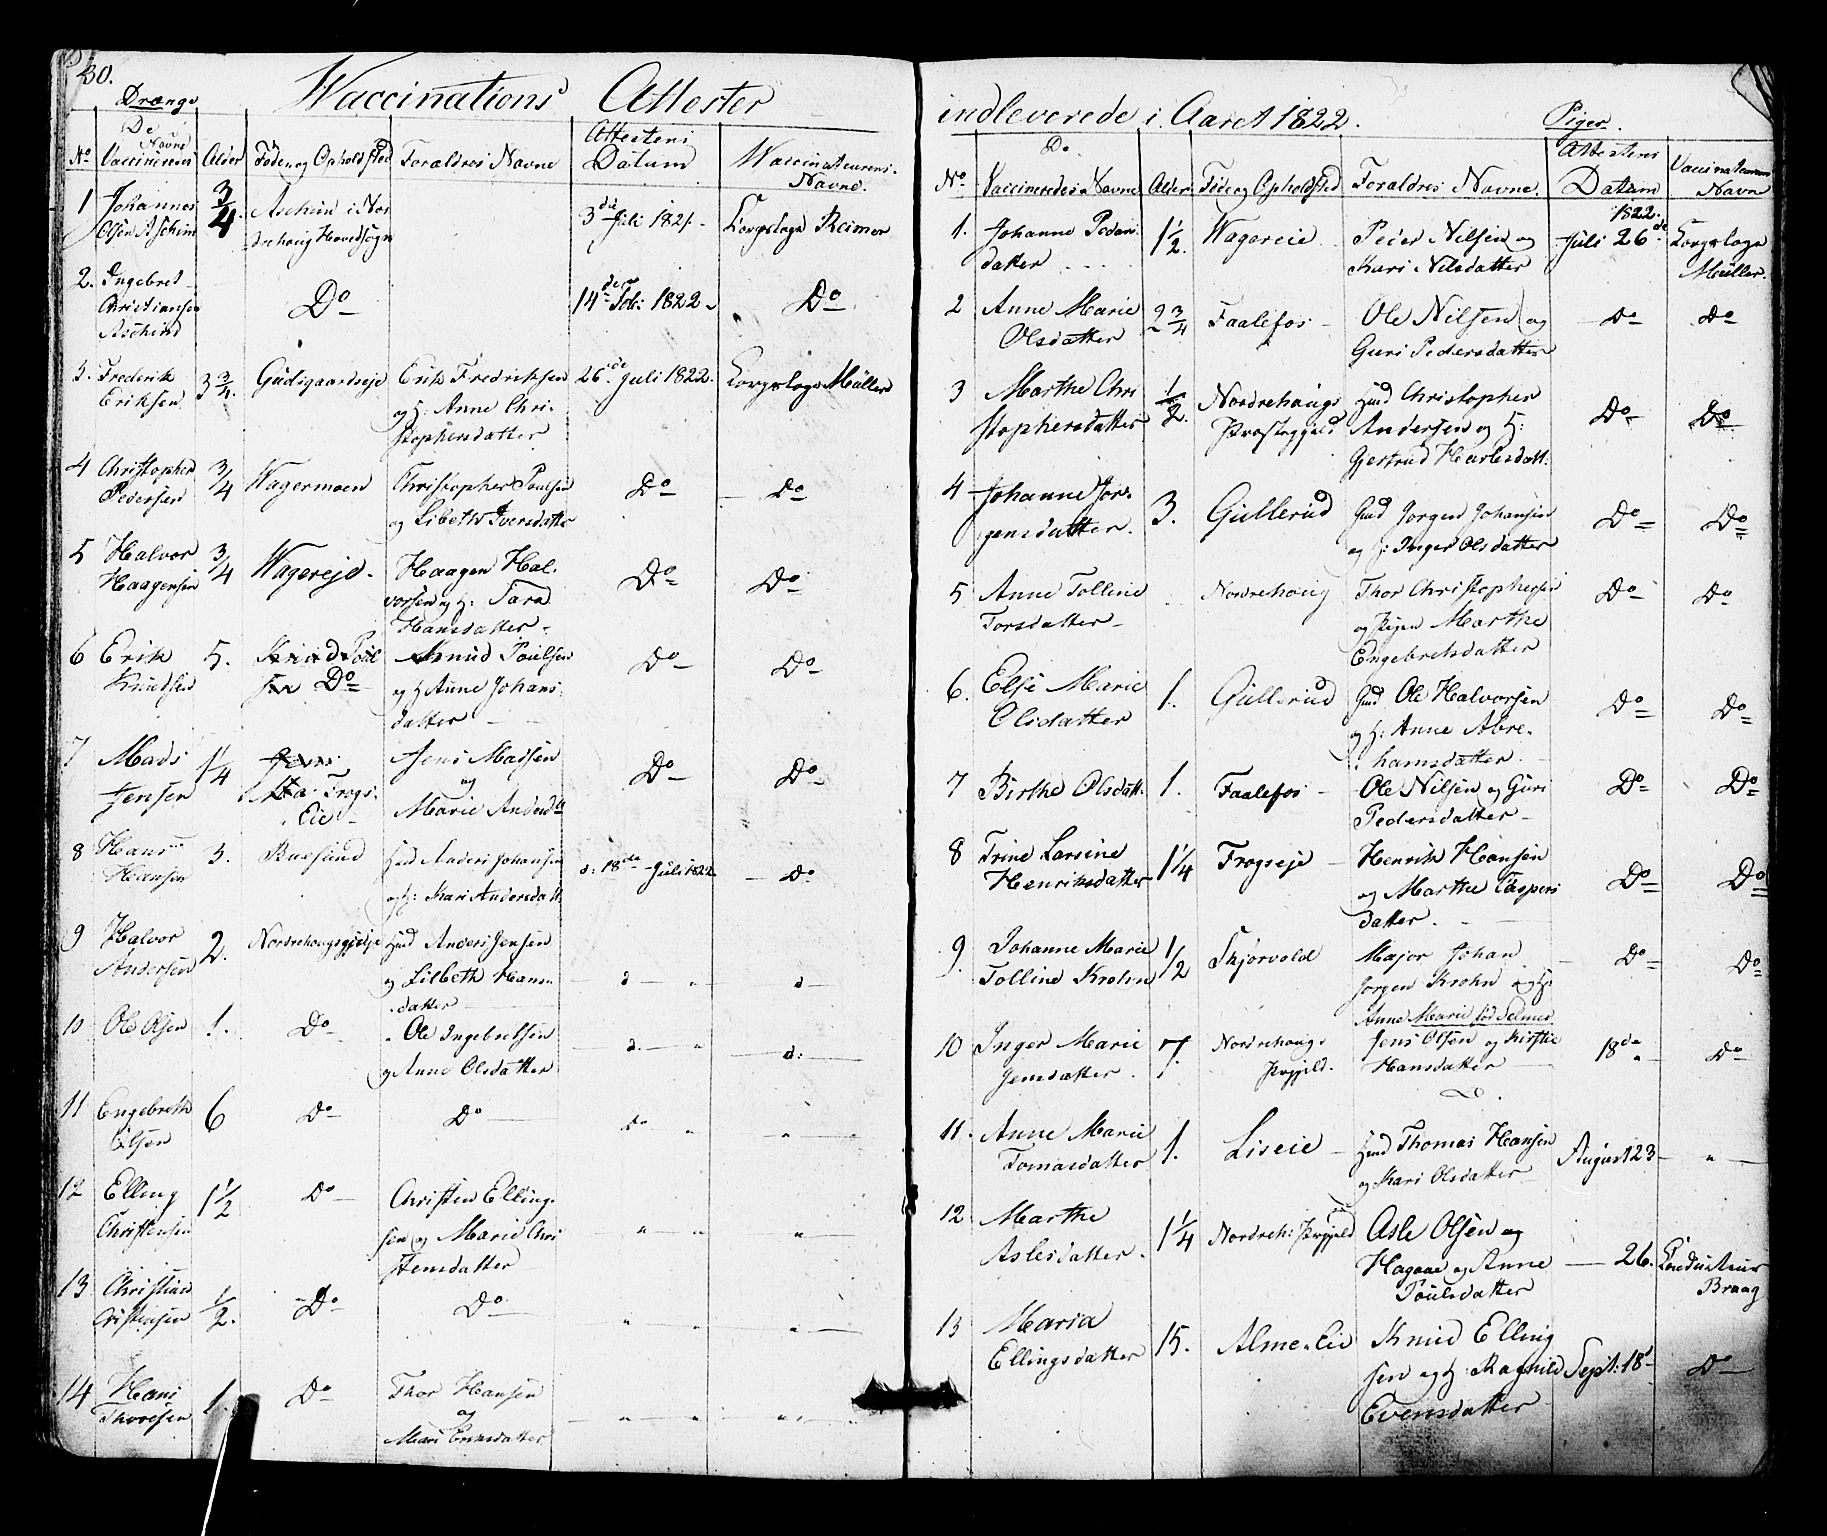 30.
Drænge
Waccinations Attester
De
Navne
Attestens
No Vaccineredes Alder Føde og Opholdsted Forældres Navne Datum Waccinateurens
Navne.
1 Johannes 3/4 Aschim i Nor 3die Juli 1821. Corpslæge Reimer
Olsen Aschim drehoug Hovedsogn
2. Ingebret Do 14de Feb: 1822. Do
Christiansen
Aschim
3. Frederik 3 3/4. Gudsgaardseje Erik Fredriksen 26de Juli 1822. Corpslæge Müller
Eriksen og H: Anne Chri-
stophersdatter
4 Christopher 3/4 Wagermoen Christopher Poulsen Do Do
Pedersen og Lisbeth Iversdatter
5 Halvor 3/4 Wagereje. Haagen Hal- Do Do
Haagensen vorsen og H: Sara
Hansdatter.
6 Erik 5. Knud Poul Knud Poulsen Do Do
Knudsen sen Do og H: Anne Johans
datter
7 Mads 1 1/4 Jens Jens Madsen Do Do
Jensen Frogs- og
Eie Marie Andersd
8 Hans 3. Busund Gmd Anders Johansen d: 18de Juli 1822 Do
Hansen og H: Kari Andersdatt
9 Halvor 2. Norderhougsgjeld Hmd Anders Jensen d " d
Andersen og Lisbeth Hans-
datter
10 Ole Olsen 1. Do Ole Ingebretsen d. " d:
og Anne Olsdatter
11 Engebreth 6 Do Do Do " "
Olsen
12 Elling 1 1/2 Do Christen Elling- " " "
Christensen sen og Marie Chri
stensdatter
13 Christian 1/2. Do Do " " "
Cristensen
14 Hans 1. Do Thor Hansen " " "
Thoresen og
Mari Eriksdatter
indleverede i Aaret 1822. Piger.
De Attestens Vaccinateurens
No Vaccineredes Navne Alder Føde og Opholdsted Forældres Navne. Datum Navn
1822.
1. Johanne Peders 1 1/2. Wagereie Peder Nilsen og Juli 26de Corpslæge
datter Kari Nilsdatter Müller.
2 Anne Marie 2 3/4 Faalefos Ole Nilsen og Do Do
Olsdatter Guri Pedersdatter
3 Marthe Chri 1/2. Nordrehougs Hmd Christopher Do Do
stophersdatter Præstegjeld Andersen og H:
Gjertrud Karlesdatt.
4 Johanne Jør- 3. Gullerud Gmd Jørgen Johansen Do Do
gensdatter. og H: Inger Olsdatter
5 Anne Tolline Nordrehoug Thor Christophersen Do Do
Torsdatter og Pigen Marthe
Engebretsdatter
6. Else Marie 1. Gullerud Gmd Ole Halvorsen Do Do
Olsdatter og H: Anne Abra-
hamsdatter.
7 Birthe Olsdatt. 1. Faalefos Ole Nilsen og Guri Do Do
Pedersdatter
8 Trine Larsine 1 1/4 Frogseje Henrik Hansen Do Do
Henriksdatter og Marthe Caspers
datter.
9. Johanne Marie 1/2 Skjørvold Major Johan Do Do
Tolline Krohn Jørgen Krohn og H:
Anne Marie fød Selmer
10 Inger Marie 7. Nordrehougs Jens Olsen og Kirstie 18de " Do
Jensdatter. Prgjeld. Hansdatter
11. Anne Marie 1. Liseie Hmd Thomas Hansen August 23 "
Tomasdatter og Kari Olsdatter
12 Marthe 1 1/4 Nordreh: Prgjeld Asle Olsen og 26. Conducteur
Aslesdatter. Hagaae og Anne Braag
Poulsdatter
13 Maria 15. Alme-Eie Knud Elling Sept: 18 Do
Ellingsdatter sen og H: Ragnild
Evensdatter